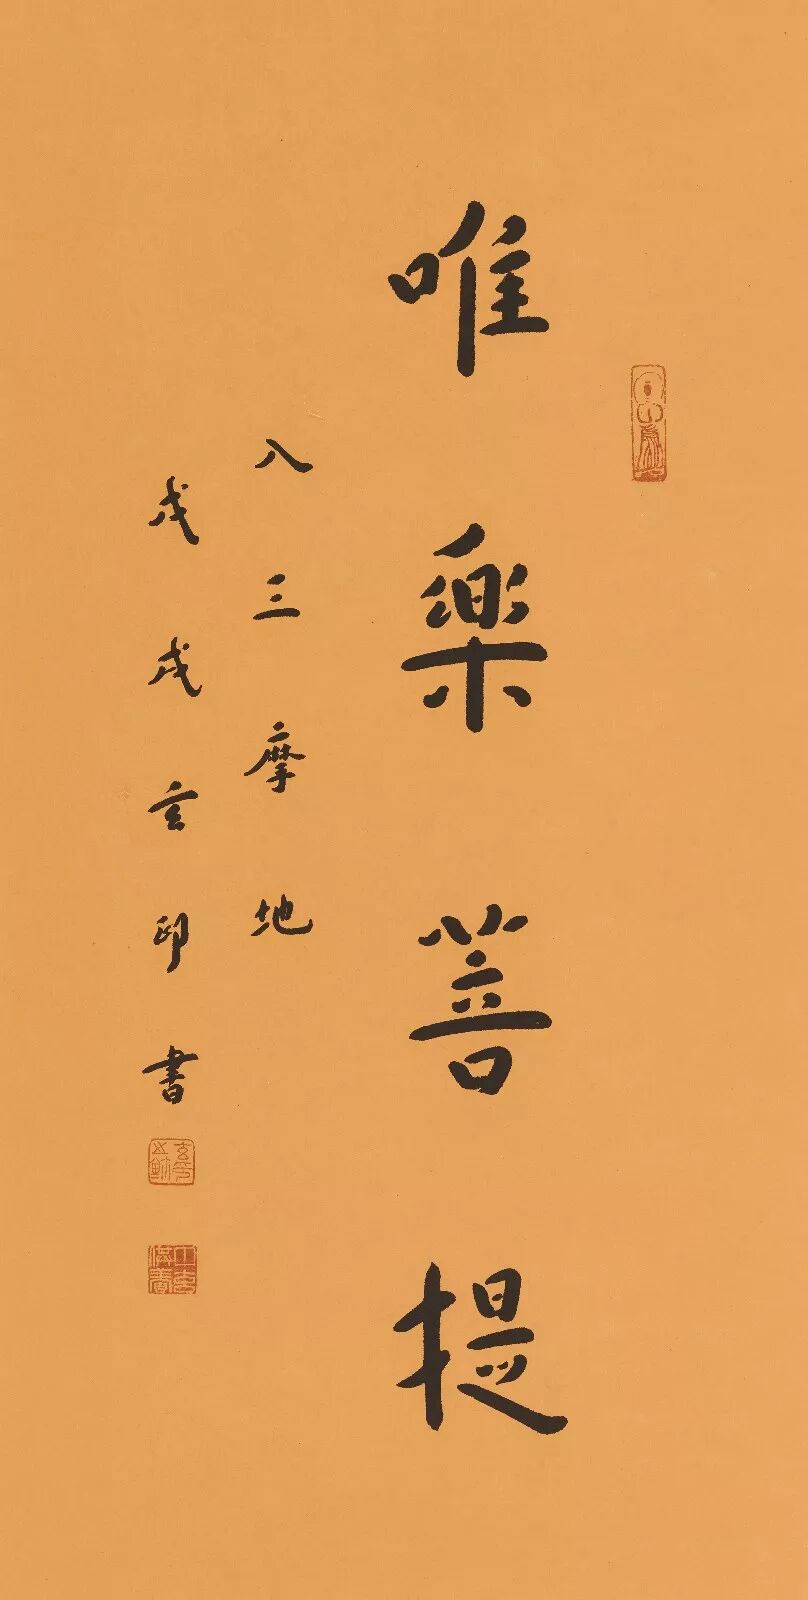 唯樂菩提
入三摩地
戊戌玄印書